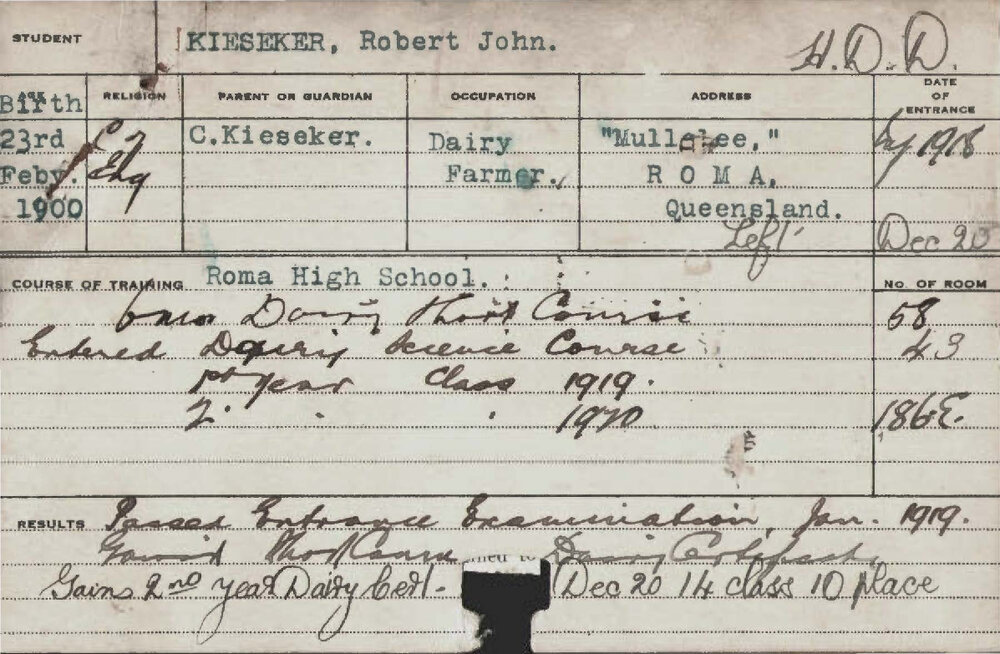 STUDENT KIESEKER, Robert John. H.D.D.
AGE RELIGION PARENT OR GUARDIAN OCCUPATION ADDRESS DATE OF ENTRANCE
Birth
23rd C of C.Kieseker. Dairy "Mullalee," 1918
Feby. Eng Farmer. R O M A,
1900 Queensland.
Left Dec 20
COURSE OF TRAINING Roma High School. NO. OF ROOM
6 mos Dairy Short Course 58
Entered Dairy Science Course 43
1st Year Class 1919.
2. " " 1920 186E.
RESULTS Passed Entrance Examination, Jan. 1919.
Gained Short Course Dairy Certificate,
Gains 2nd year Dairy Cert. Dec 20 14 class 10 place